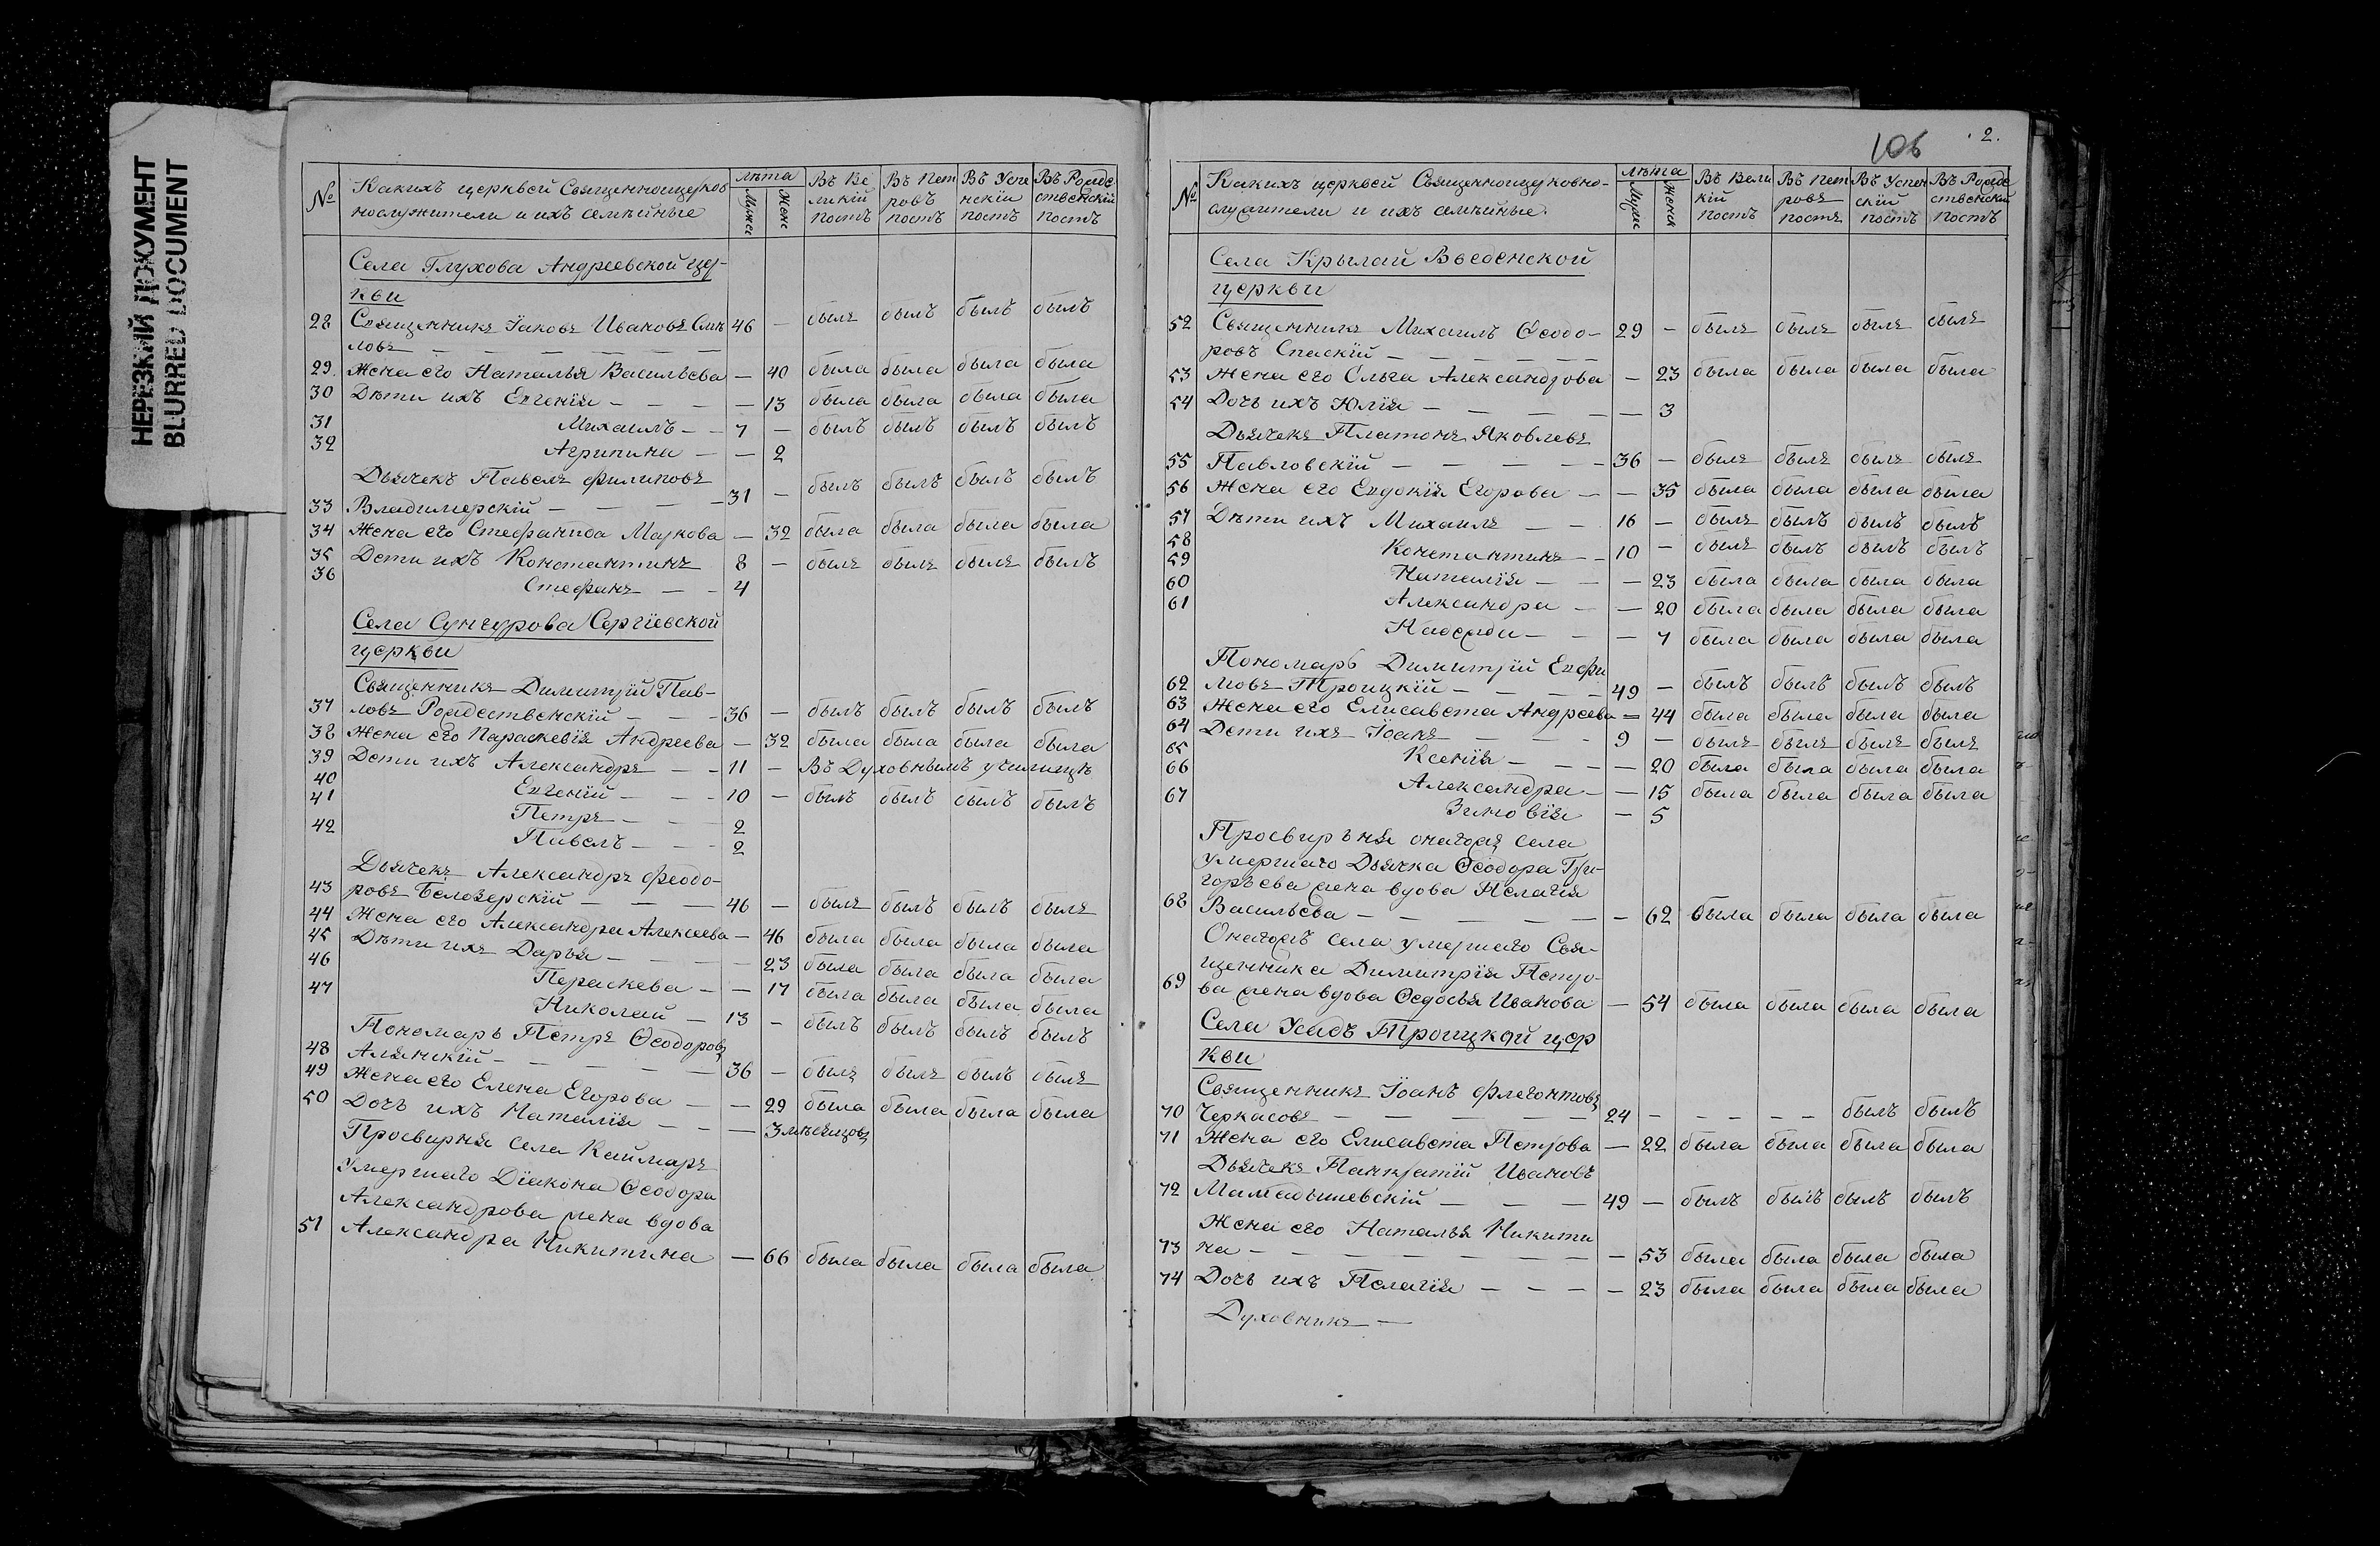 НЕРЕЗКИЙ ДОКУМЕНТ
BLURRED DOCUMENT
№ Какихъ церквей Священноцерков лѣта Въ Ве Въ Пет Въ Успе Въ Рожде
нослужители и ихъ семѣйные Мужс Женс ликій ровъ нскій ственскій
постъ постъ постъ постъ
Села Глухова Андреевской цер-
кви
28 Священникъ Іаковъ Ивановъ 46 — былъ былъ былъ былъ
ловъ — — — — — —
29. Жена его Наталья Васильева — 40 была была была была
30 Дѣти ихъ Евгенія — — — — 13 была была была была
31 Михаилъ — — 7 — былъ былъ былъ былъ
32 Агрипина — — 2
Дьячекъ Павелъ Филиповъ
33 Владимерскій — — — — 31 — былъ былъ былъ былъ
34 Жена его Стефанида Маркова — 32 была была была была
35 Дети ихъ Константинъ 8 — былъ былъ былъ былъ
36 Стефанъ — — 4
Села Сунгурова Сергіевской
церкви
Священникъ Димитрій Пав-
37 ловъ Рождественскій — — — 36 — былъ былъ былъ былъ
38 Жена его Параскевія Андреева — 32 была была была была
39 Дети ихъ Александръ — — 11 — Въ Духовнымъ училищѣ
40 Евгеній — — — 10 — былъ былъ былъ былъ
41 Петръ — — — 2
42 Павелъ — — — 2
Дьячекъ Александръ Феодо-
43 ровъ Белозерскій — — — 46 — былъ былъ былъ былъ
44 Жена его Александра Алексеева — 46 была была была была
45 Дѣти ихъ Дарья — — — — 23 была была была была
46 Пераскева — — 17 была была была была
47 Николай — 13 — былъ былъ былъ былъ
Пономарь Петръ Ѳеодоровъ
48 Алянскій — — — — — 36 — былъ былъ былъ былъ
49 Жена его Елена Егорова — — 29 была была была была
50 Дочь ихъ Наталія — — — 3 мѣсяцовъ
Просвирня села Каймаръ
умершаго Діакона Ѳеодора
Александрова жена вдова
51 Александра Никитина — 66 была была была была
106 2.
№ Какихъ церквей Священноцерковно- лѣта Въ Вели Въ Пет Въ Успен Въ Рожде
служители и ихъ семѣйные. Мужс Женск кій ровъ скій ственскій
постъ постъ постъ постъ
Села Крылай Введенской
церкви
52 Священникъ Михаилъ Ѳеодо- 29 — былъ былъ былъ былъ
ровъ Спаскій — — — — —
53 Жена его Ольга Александрова — 23 была была была была
54 Дочь ихъ Юлія — — — — — 3
Дьячекъ Платонъ Яковлевъ
55 Павловскій — — — — — 36 — былъ былъ былъ былъ
56 Жена его Евдокія Егорова — — 35 была была была была
57 Дѣти ихъ Михаилъ — — 16 — былъ былъ былъ былъ
58 Константинъ — — 10 — былъ былъ былъ былъ
59 Наталія — — — 23 была была была была
60 Александра — — 20 была была была была
61 Надежда — — — 7 была была была была
Пономарь Димитрій Евфи
62 мовъ Троицкій — — — — 49 — былъ былъ былъ былъ
63 Жена его Елисавета Андреева — 44 была была была была
64 Дети ихъ Іоанъ — — — — 9 — былъ былъ былъ былъ
65 Ксенія — — — — 20 была была была была
66 Александра — — 15 была была была была
67 Зиновія — 5
Просвирьня онагожъ села
умершаго Дьячка Ѳеодора Гри-
горьева жена вдова Пелагія
68 Васильева — — — — — — 62 была была была была
Онагожъ села умершаго Свя-
щенника Димитрія Петро-
69 ва жена вдова Ѳедосья Иванова — 54 была была была была
Села Усадъ Троицкой цер
кви
Священникъ Іоанъ Флегонтовъ
70 Черкасовъ — — — — — 24 — — — — — былъ былъ
71 Жена его Елисавета Петрова — 22 была была была была
Дьячекъ Панкратій Ивановъ
72 Мамадышевскій — — — 49 — былъ былъ былъ былъ
Жена его Наталья Никити
73 на — — — — — — — — 53 была была была была
74 Дочь ихъ Пелагія — — — — 23 была была была была
Духовникъ —